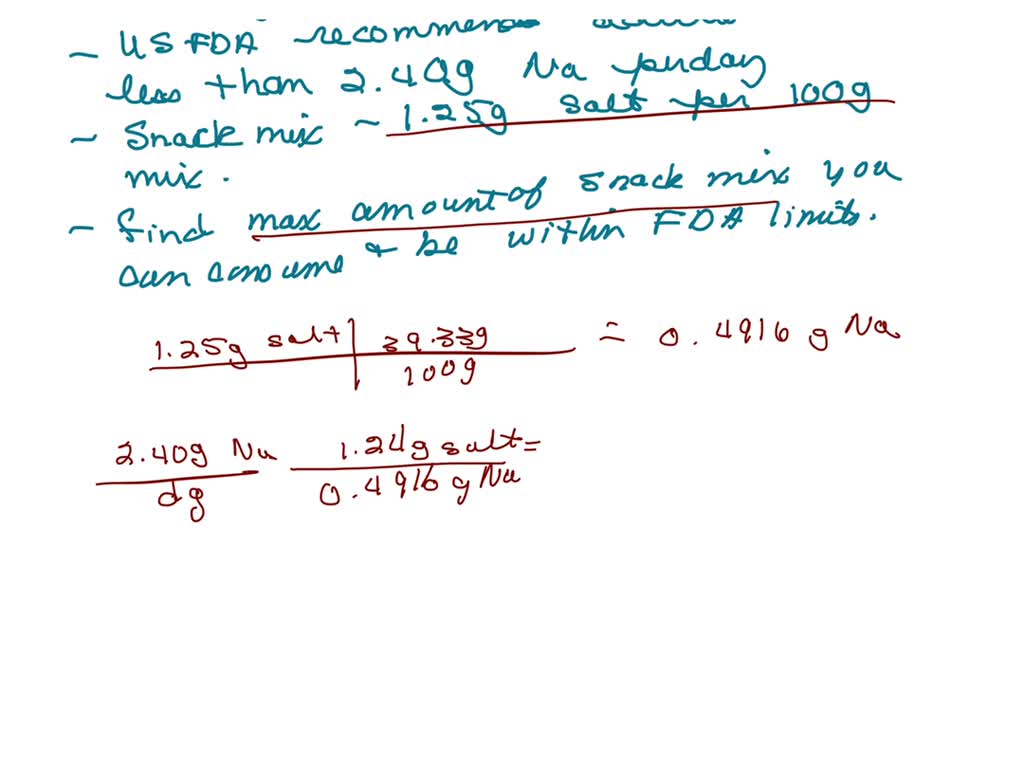 ~ US FDA recommends
less than 2.40g Na per day
~ Snack mix ~ 1.25g salt per 100g
mix.
~ find max amount of snack mix you
can consume & be within FDA limits.
1.25g salt | 39.33g = 0.4916 g Na
100g
2.40g Na 1.24g salt =
dg 0.4916 g Na